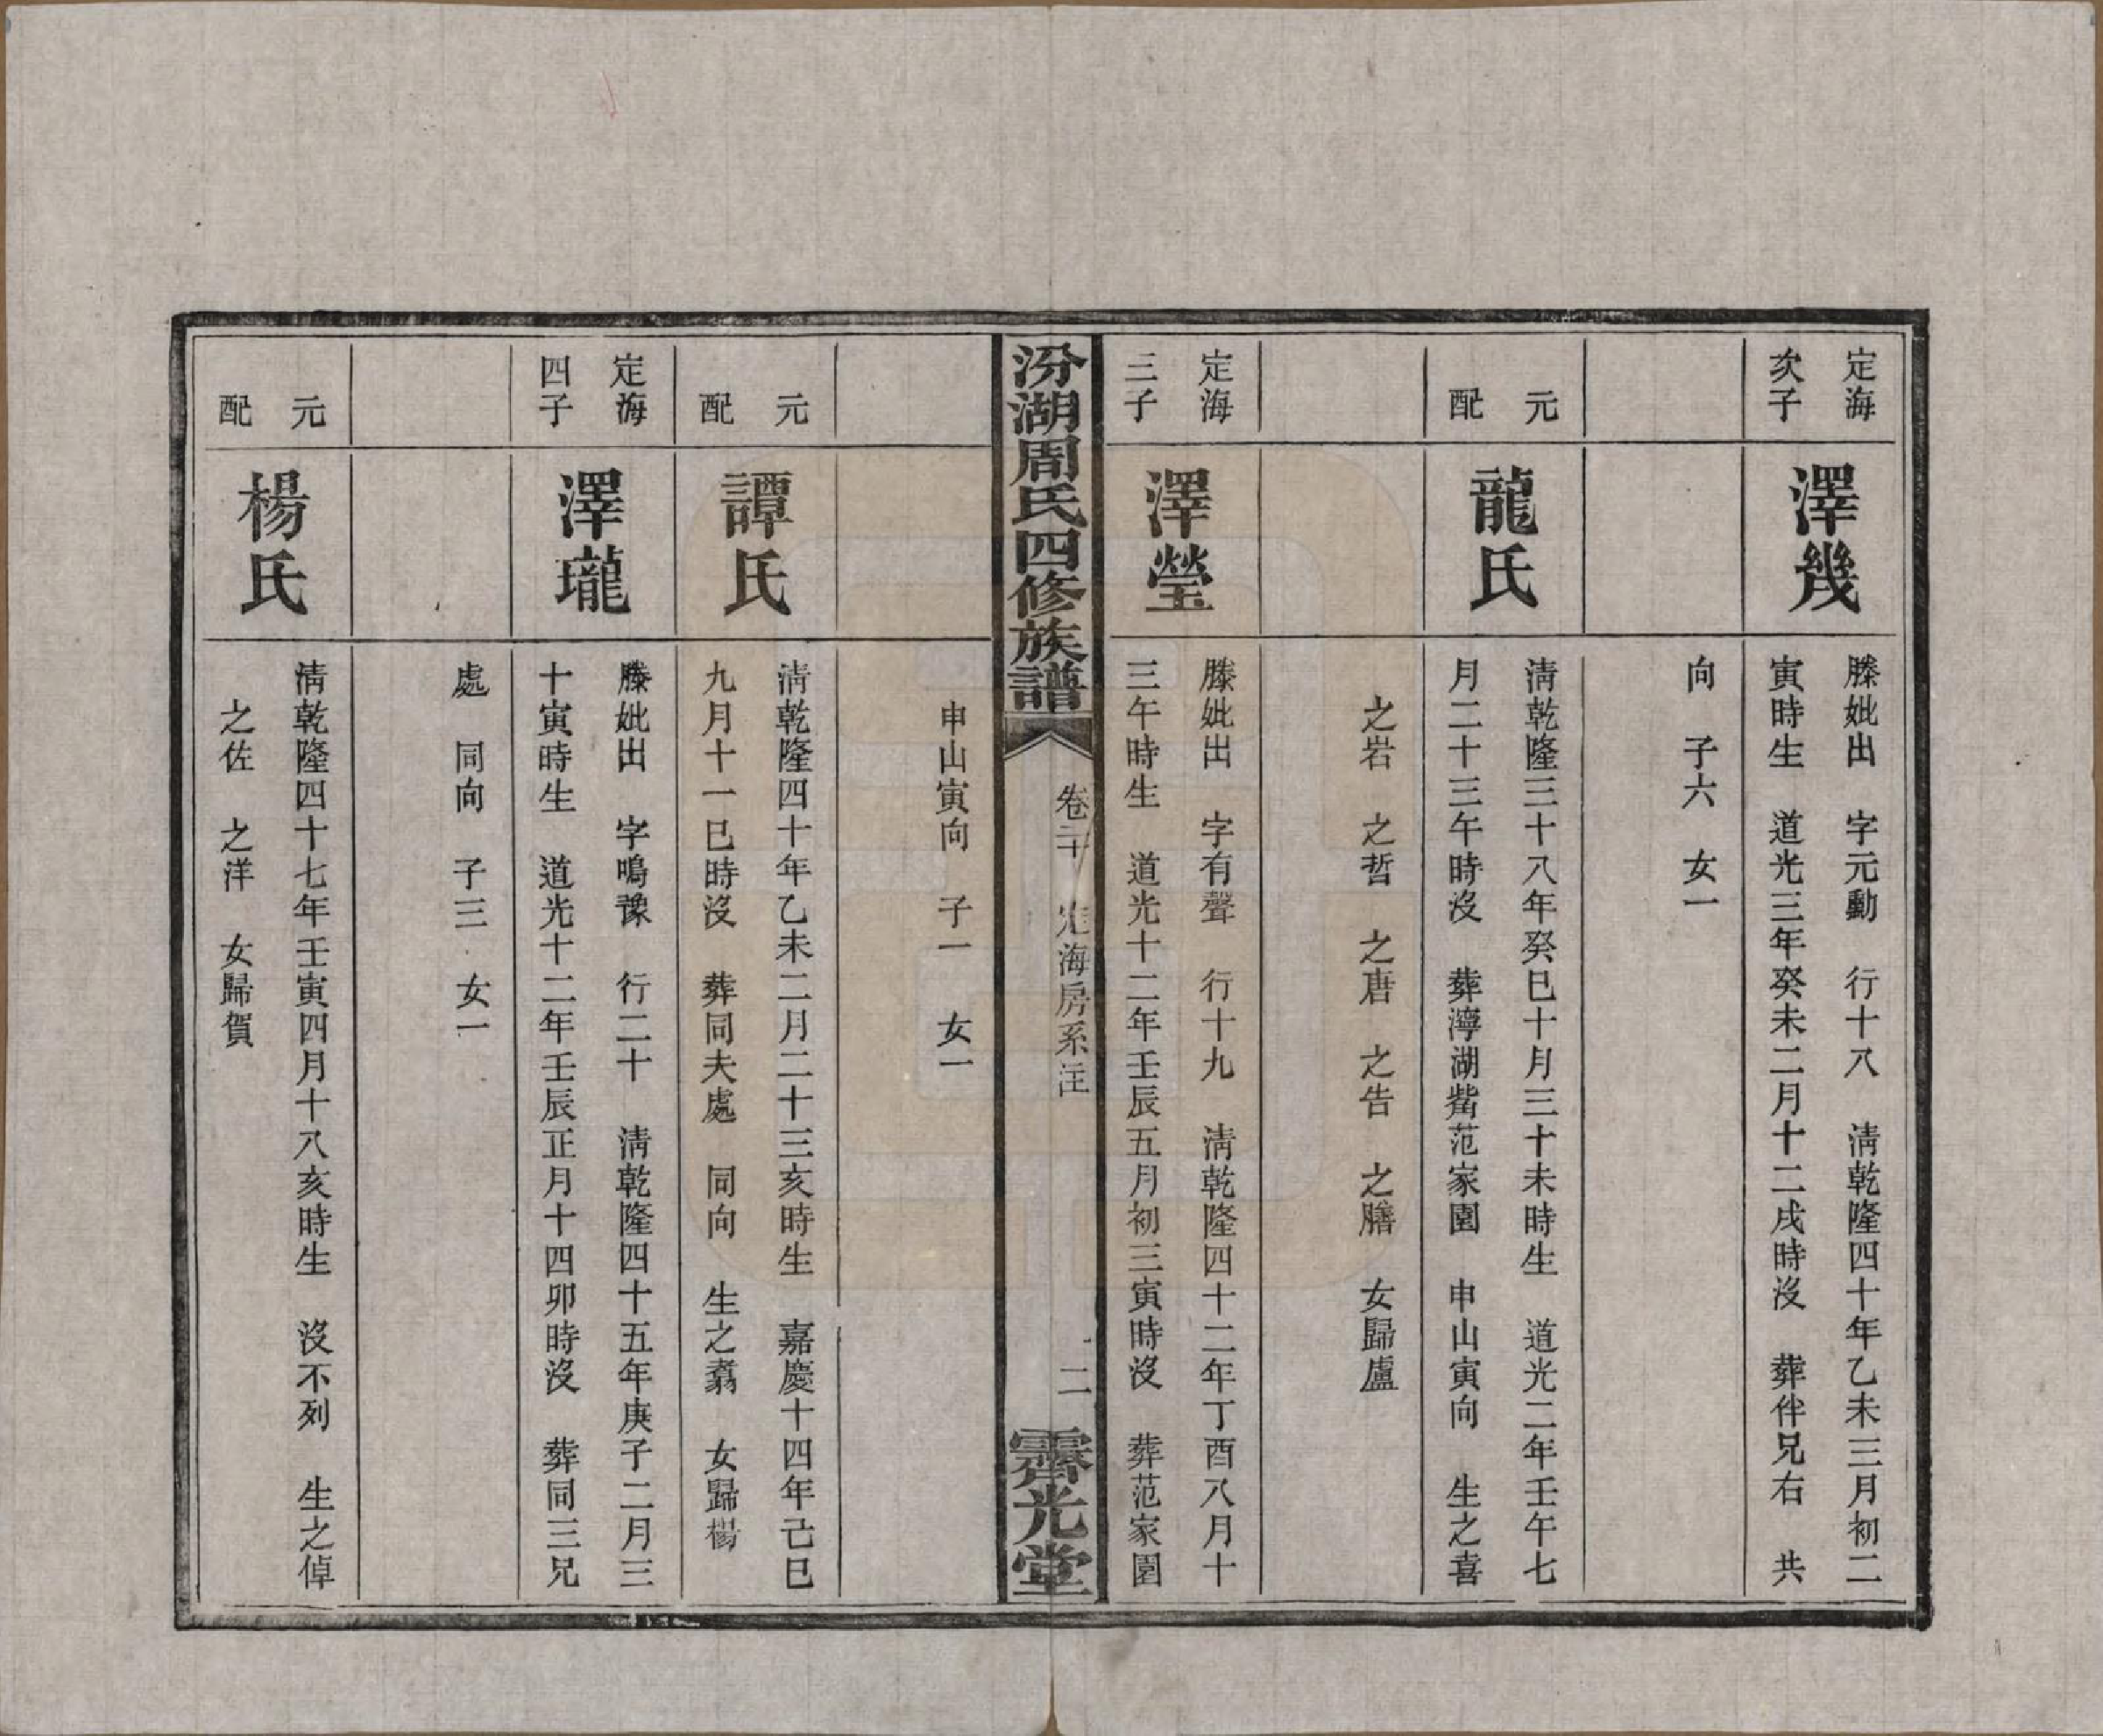 定海
次子
澤幾
滕妣出　字元勳　行十八　淸乾隆四十年乙未三月初二
寅時生　道光三年癸未二月十二戌時沒　葬伴兄右　共
向　子六　女一
元
配
龍氏
淸乾隆三十八年癸巳十月三十未時生　道光二年壬午七
月二十三午時沒　葬濘湖觜范家園　申山寅向　生之喜
之岩　之哲　之唐　之告　之膳　女歸盧
定海
三子
澤瑩
滕妣出　字有聲　行十九　淸乾隆四十二年丁酉八月十
三午時生　道光十二年壬辰五月初三寅時沒　葬范家園
汾湖周氏四修族譜
卷二十　定海房系注
二
霽光堂
申山寅向　子一　女一
元
配
譚氏
淸乾隆四十年乙未二月二十三亥時生　嘉慶十四年己巳
九月十一巳時沒　葬同夫處　同向　生之翥　女歸楊
定海
四子
澤瓏
滕妣出　字鳴豫　行二十　淸乾隆四十五年庚子二月三
十寅時生　道光十二年壬辰正月十四卯時沒　葬同三兄
處　同向　子三　女一
元
配
楊氏
淸乾隆四十七年壬寅四月十八亥時生　沒不列　生之倬
之佐　之洋　女歸賀